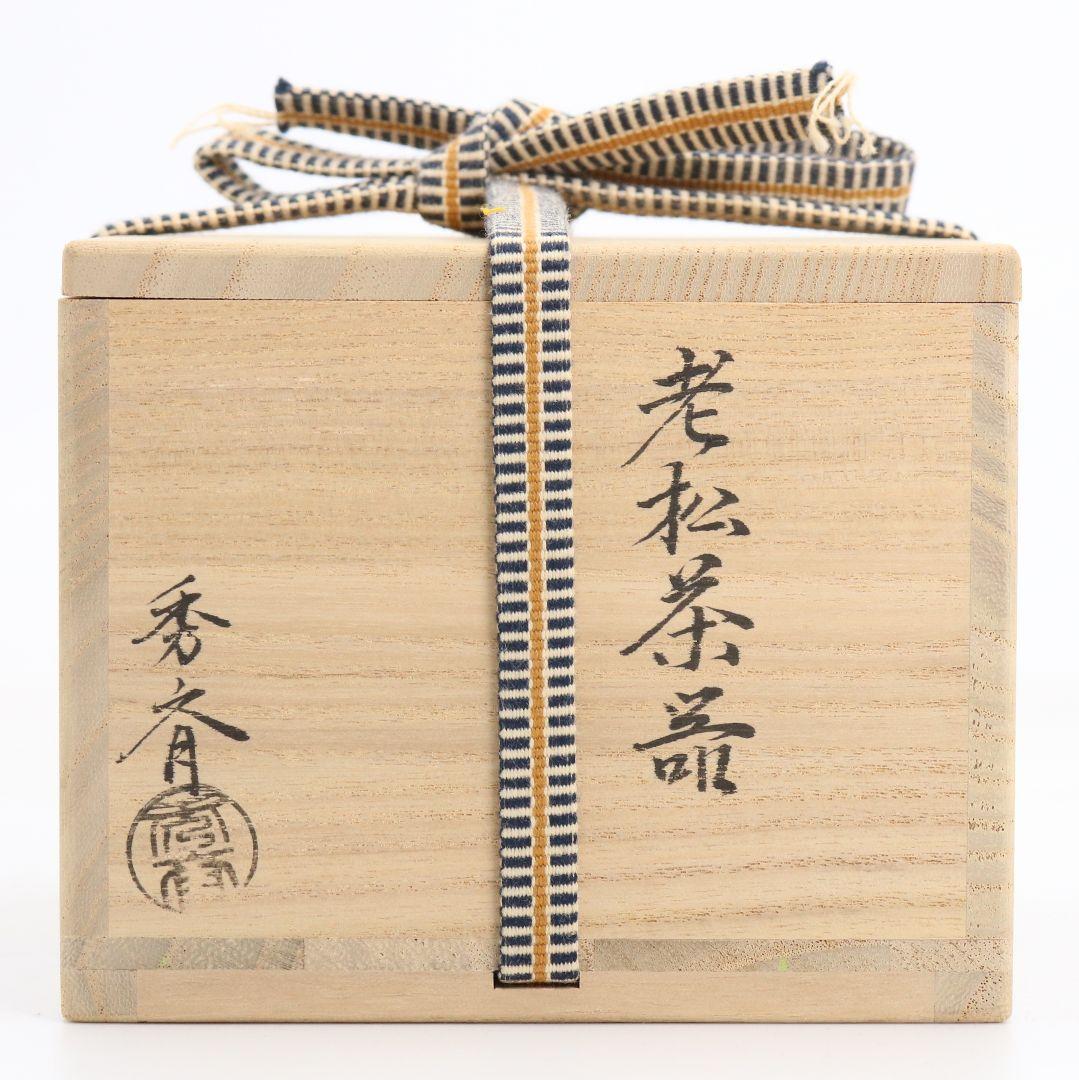 老松茶器
秀斉